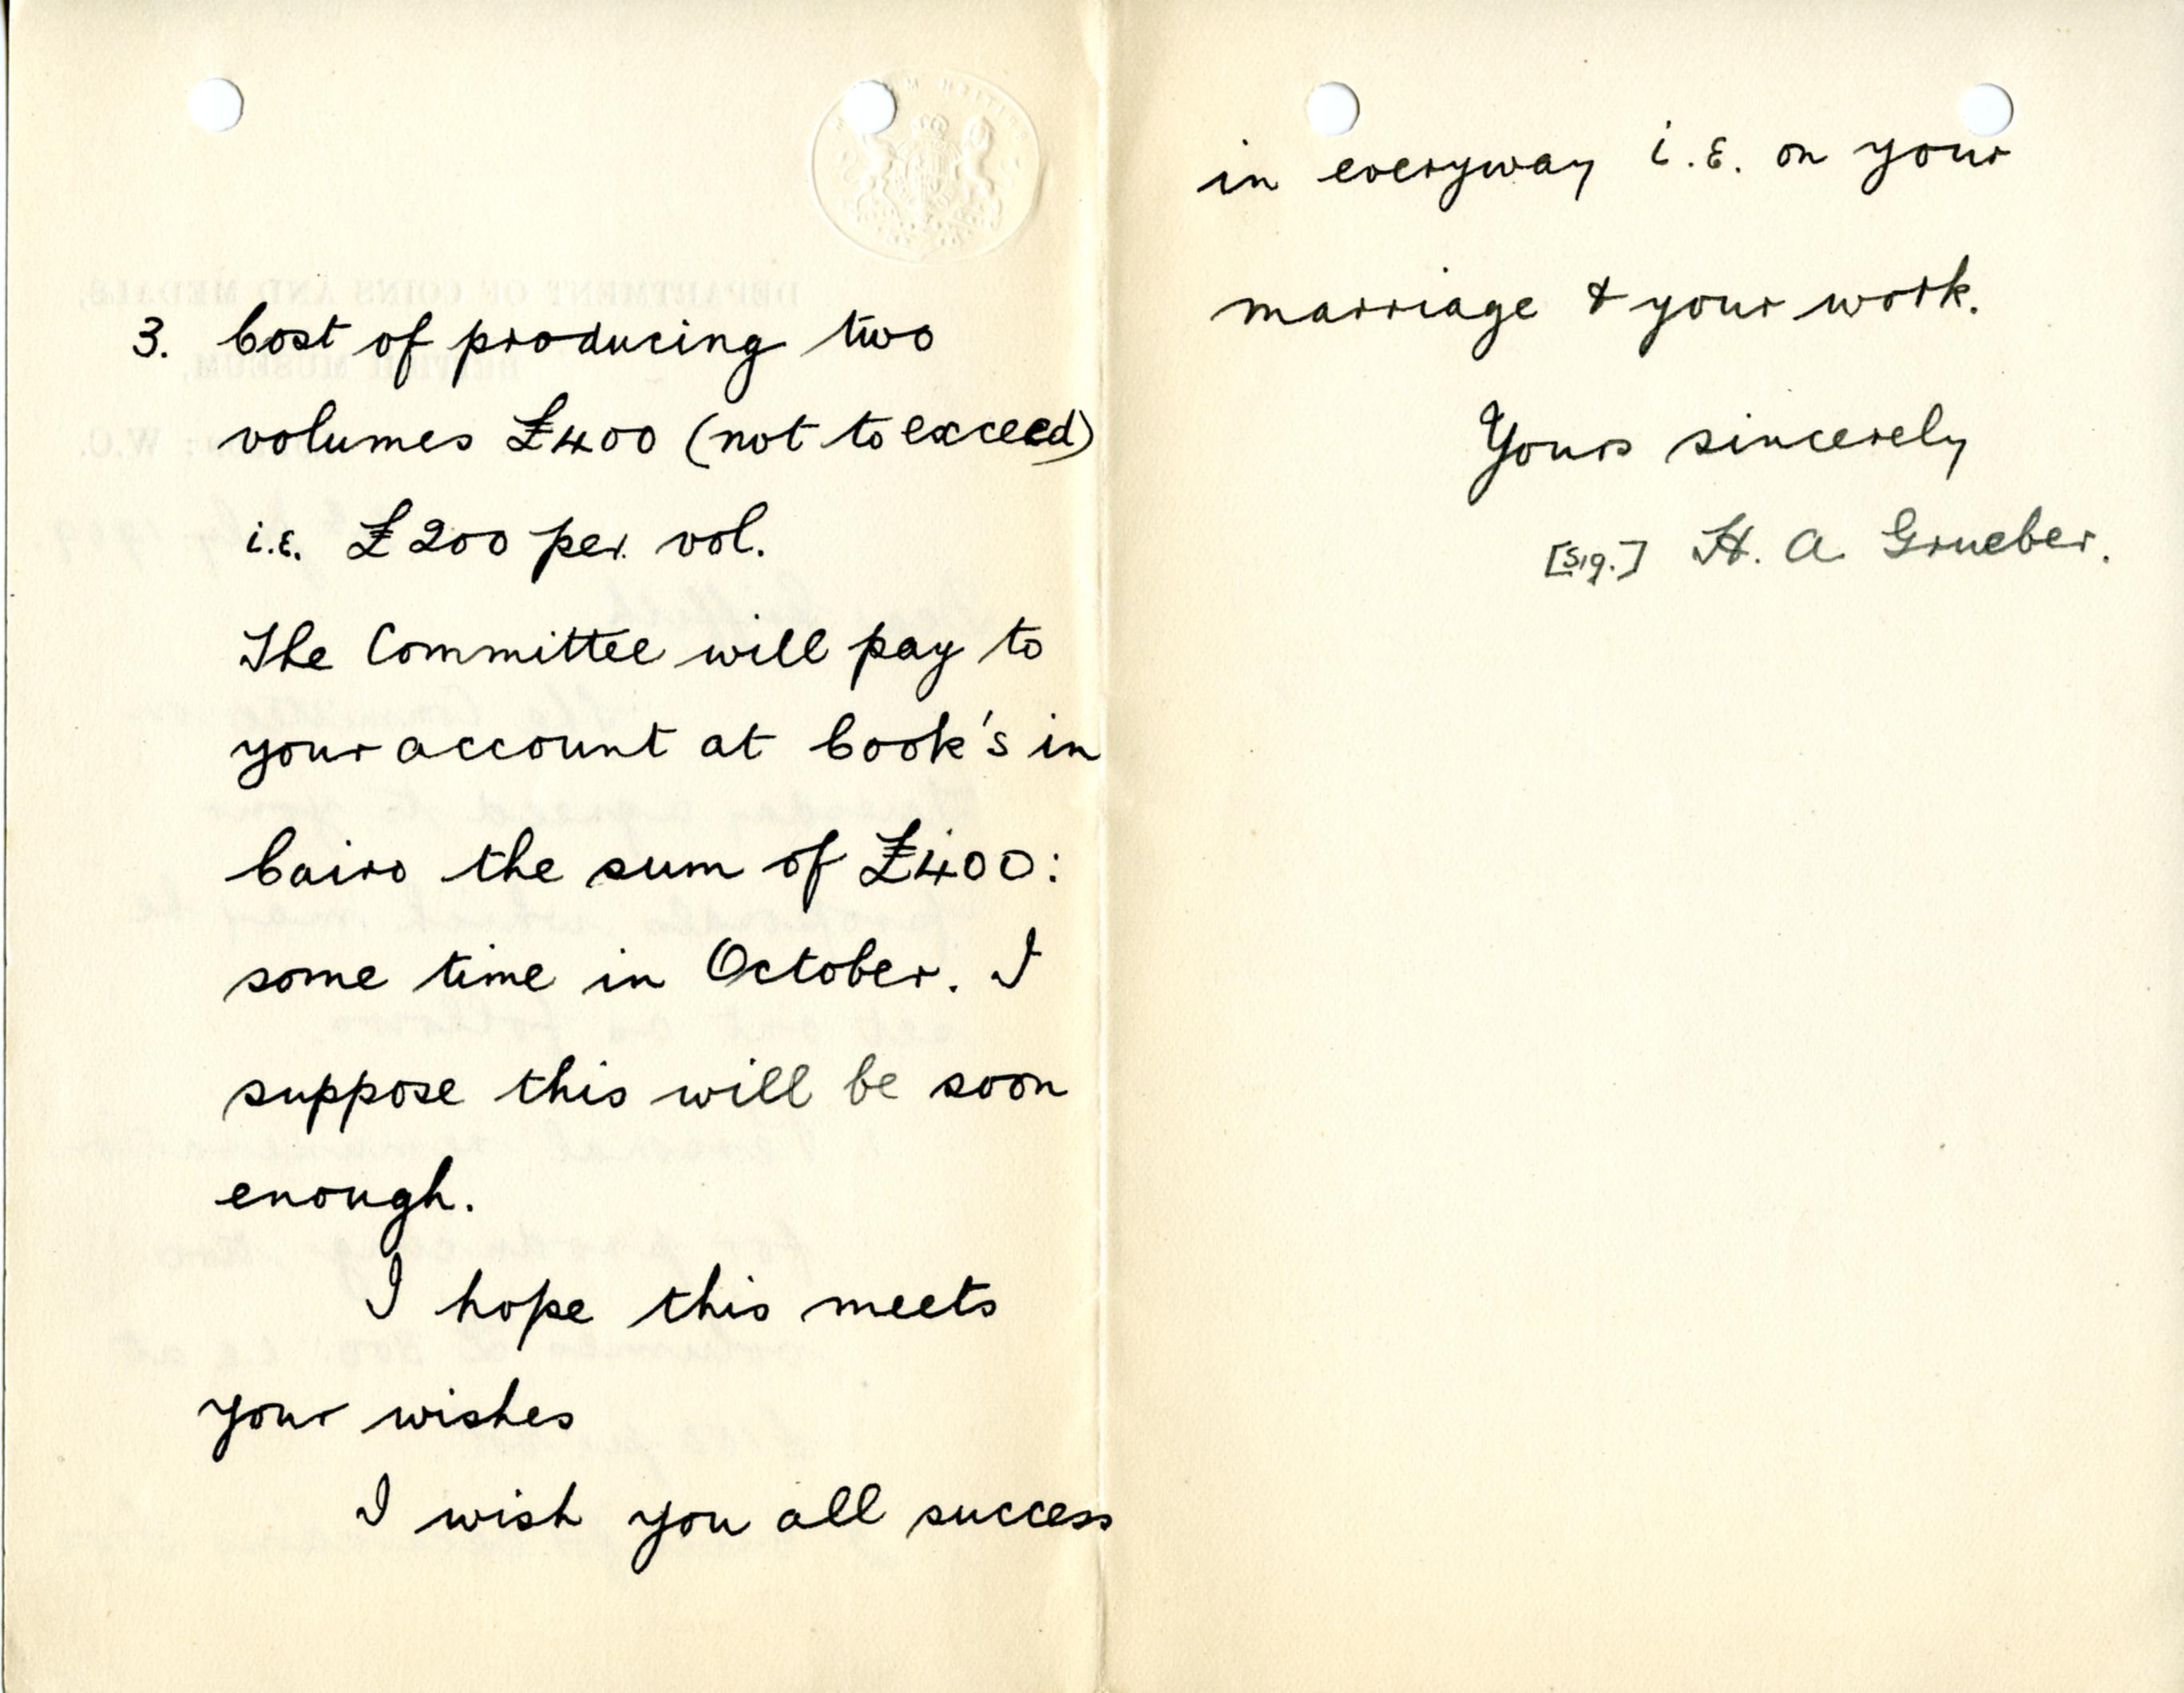 3. Cost of producing two
volumes £400 (not to exceed)
i.e. £200 per vol.
The Committee will pay to
your account at Cook's in
Cairo the sum of £400:
some time in October. I
suppose this will be soon
enough.
I hope this meets
your wishes
I wish you all success
in everyway i.e. on your
marriage & your work.
Yours sincerely
[Sig.] H. A Grueber.
DEPARTMENT OF COINS AND MEDALS,
BRITISH MUSEUM,